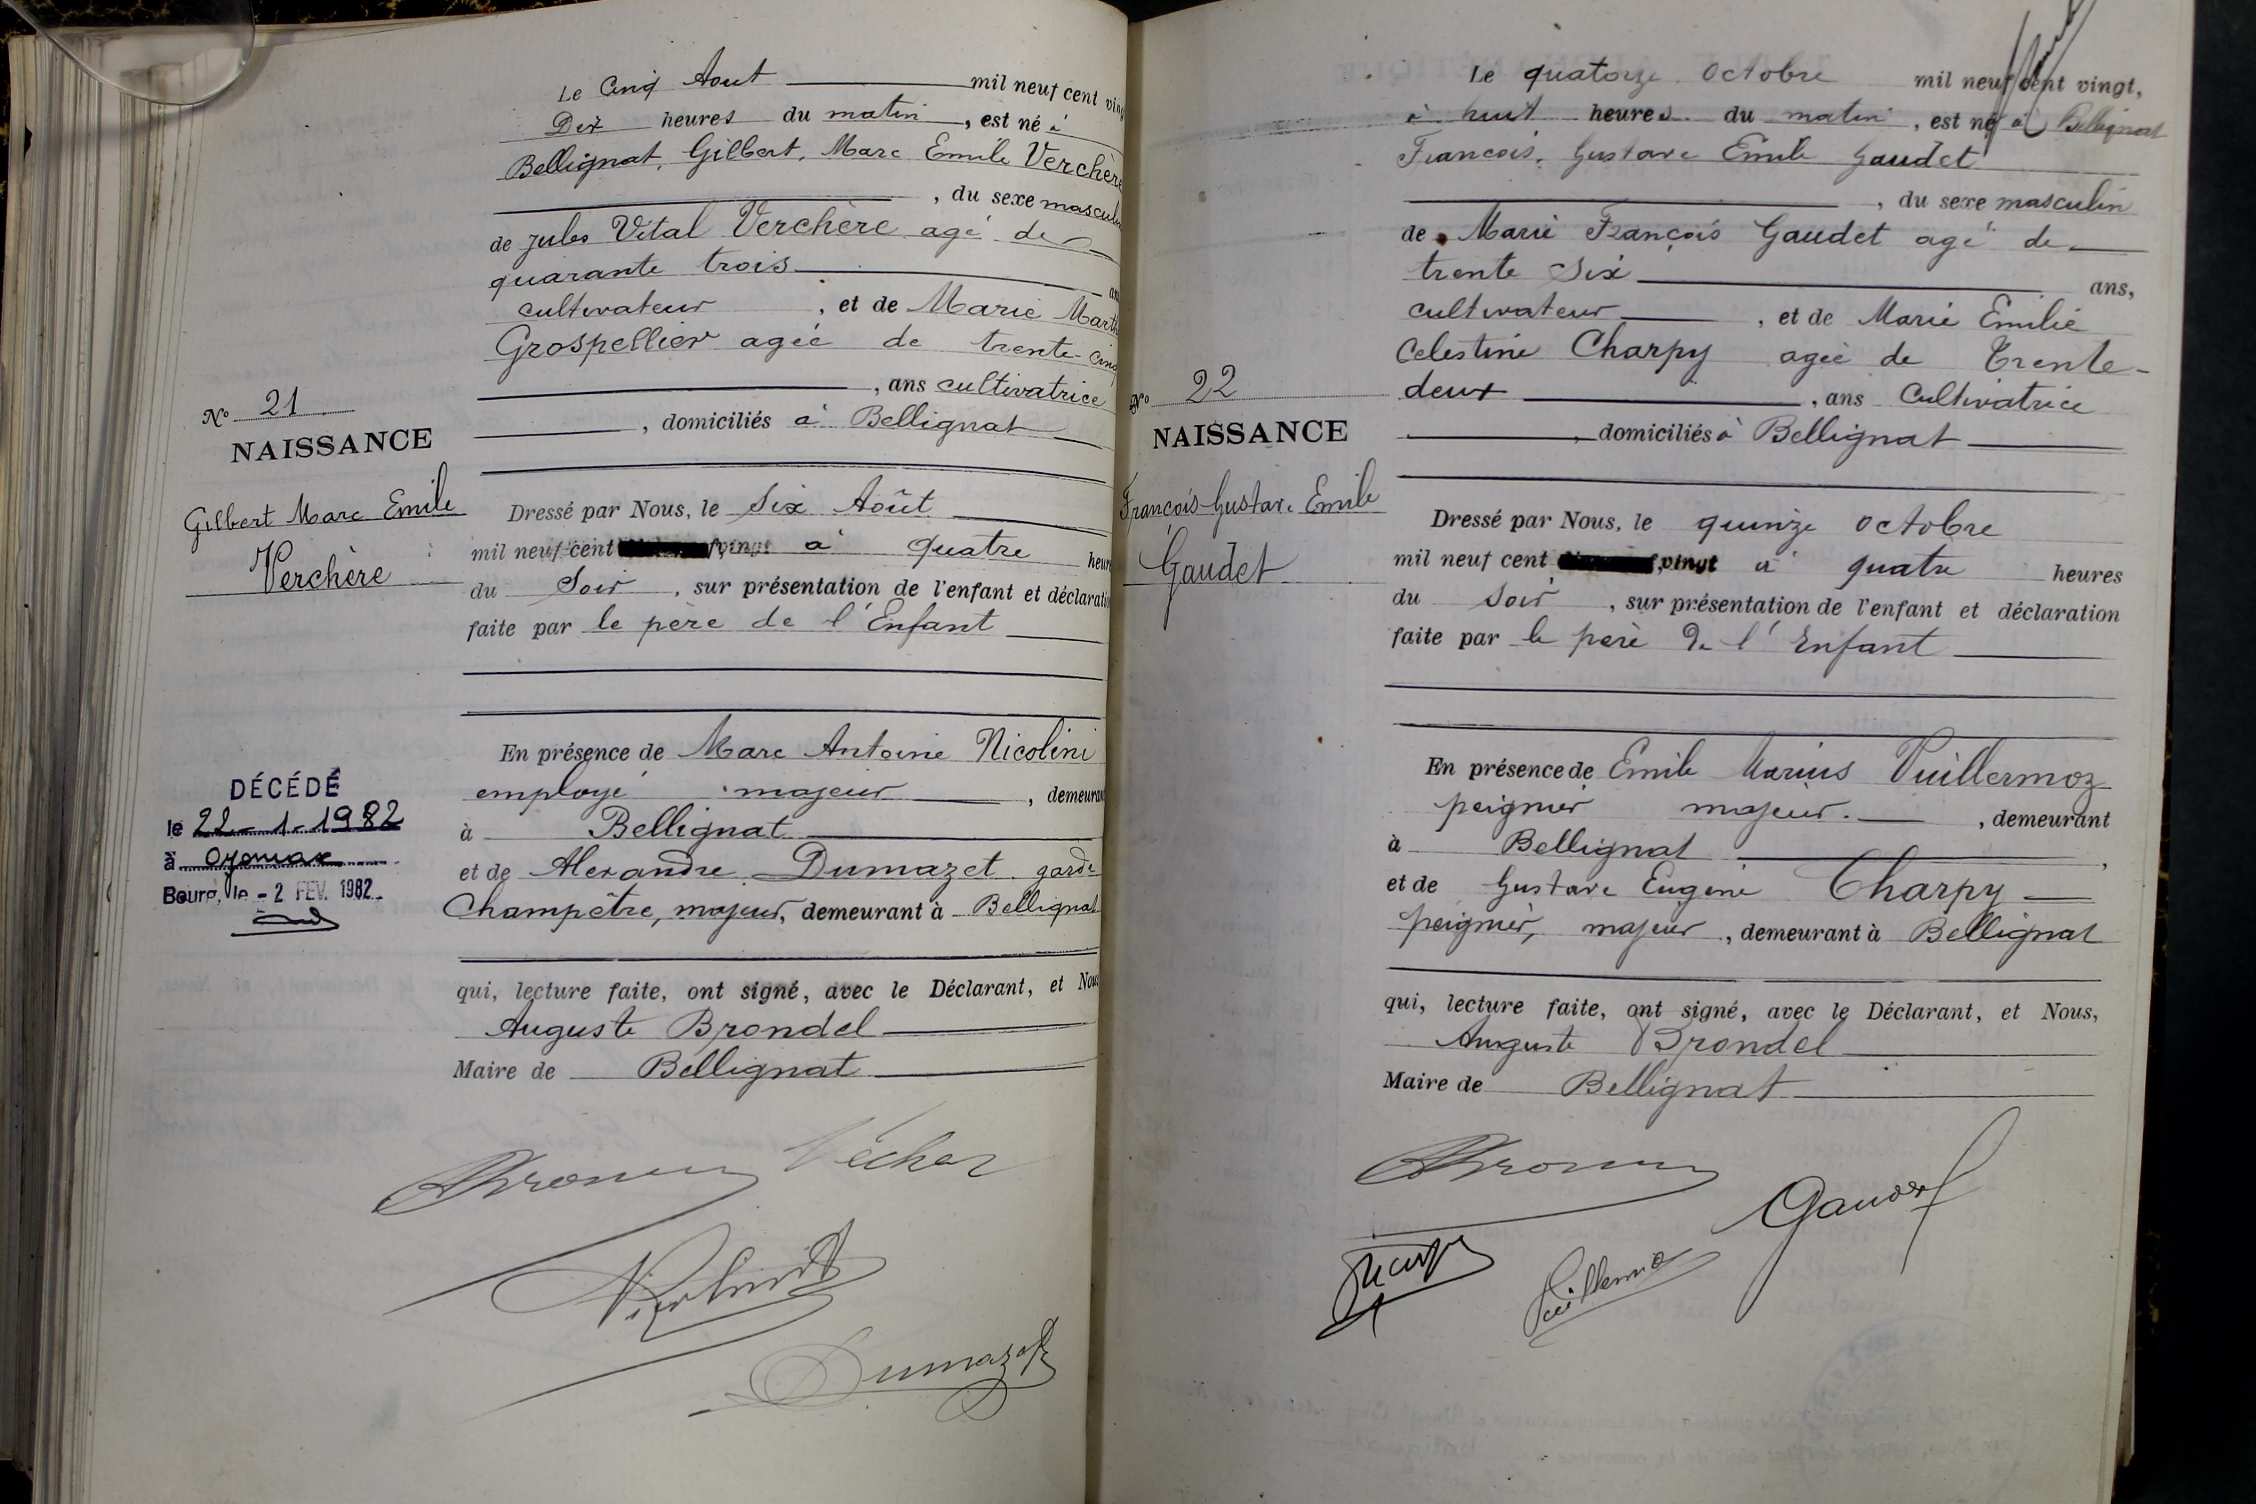 Le Cinq Aout mil neuf cent ving
Dix heures du matin, est né à
Bellignat, Gilbert, Marc Emile Verchère
, du sexe masculin
de Jules Vital Verchère agé de
quarante trois ans
cultivateur, et de Marie Marth
Grospellier agée de trente-cinq
, ans cultivatrice
, domiciliés à Bellignat
N° 21
NAISSANCE
Gilbert Marc Emile
Verchère
Dressé par Nous, le Six Août
mil neuf cent vingt à quatre heures
du Soir, sur présentation de l'enfant et déclaration
faite par le père de l'Enfant
En présence de Marc Antoine Nicolini
employé majeur, demeurant
à Bellignat
et de Alexandre Dumazet garde
Champêtre, majeur, demeurant à Bellignat
DÉCÉDÉ
le 22-1-1982
à Oyonnax
Bourg, le - 2 FEV. 1982
qui, lecture faite, ont signé, avec le Déclarant, et Nous
Auguste Brondel
Maire de Bellignat
Nicolini
Dumazet
Le quatorze Octobre mil neuf cent vingt,
à huit heures du matin, est né à Bellignat
François, Gustave Emile Gaudet
, du sexe masculin
de Marie François Gaudet agé de
trente six ans,
cultivateur, et de Marie Emilie
Celestine Charpy agée de Trente-
deux, ans Cultivatrice
, domiciliés à Bellignat
N° 22
NAISSANCE
François-Gustave Emile
Gaudet
Dressé par Nous, le quinze octobre
mil neuf cent vingt à quatre heures
du Soir, sur présentation de l'enfant et déclaration
faite par le père de l'Enfant
En présence de Emile Marius Vuillermoz
peignier majeur, demeurant
à Bellignat,
et de Gustave Eugène Charpy
peignier, majeur, demeurant à Bellignat
qui, lecture faite, ont signé, avec le Déclarant, et Nous,
Auguste Brondel
Maire de Bellignat
Gaudet